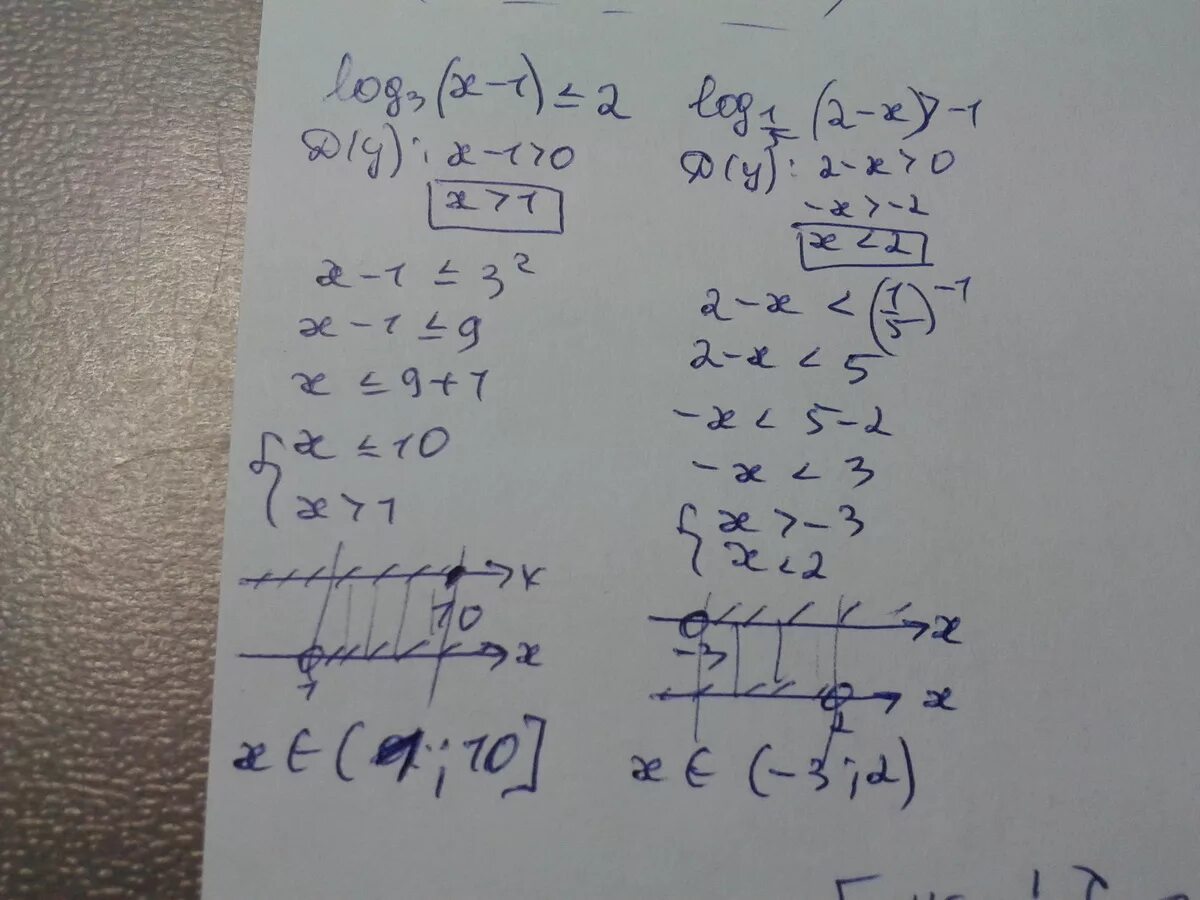 log₃(x-1) ≤ 2
D(y): x-1>0
x>1
x-1 ≤ 3²
x-1 ≤ 9
x ≤ 9+1
{ x ≤ 10
x > 1
x
10
x
1
x ∈ (1; 10]
log_{1/5} (2-x) > -1
D(y): 2-x > 0
-x > -2
x < 2
2-x < (1/5)^{-1}
2-x < 5
-x < 5-2
-x < 3
{ x > -3
x < 2
x
-3
x
2
x ∈ (-3; 2)